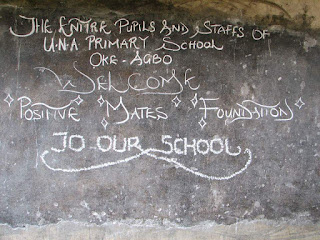 THE ENTIRE PUPILS AND STAFFS OF
U.N.A PRIMARY SCHOOL
OKE-AGBO
WELCOME
POSITIVE MATES FOUNDATION
TO OUR SCHOOL